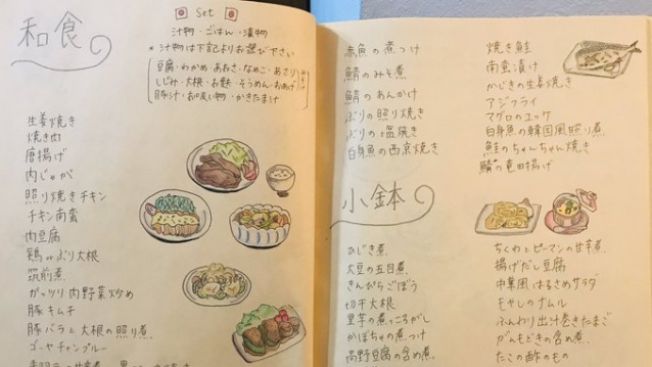 和食
Set
汁物・ごはん・漬物
*汁物は下記よりお選び下さい
豆腐・わかめ・あおさ・なめこ・あさり
しじみ・大根・お麩・そうめん・おあげ
豚汁・お吸い物・かきたまけ
生姜焼き
焼き肉
唐揚げ
肉じゃが
照り焼きチキン
チキン南蛮
肉豆腐
鶏のぶり大根
筑前煮
ガッツリ肉野菜炒め
豚キムチ
豚バラと大根の照り煮
ゴーヤチャンプルー
赤魚の煮つけ
鯖のみそ煮
鯖のあんかけ
ぶりの照り焼き
ぶりの塩焼き
白身魚の西京焼き
焼き鮭
南蛮漬け
かじきの生姜焼き
アジフライ
マグロのユッケ
白身魚の韓国風照り煮
鮭のちゃんちゃん焼き
鯖の竜田揚げ
小鉢
ひじき煮
大豆の五目煮
きんぴらごぼう
切干大根
里芋の煮っころがし
かぼちゃの煮つけ
高野豆腐の含め煮
ちくわとピーマンの甘辛煮
揚げだし豆腐
中華風はるさめサラダ
もやしのナムル
ふんわり出汁巻きたまご
がんもどきの含め煮
たこの酢のもの